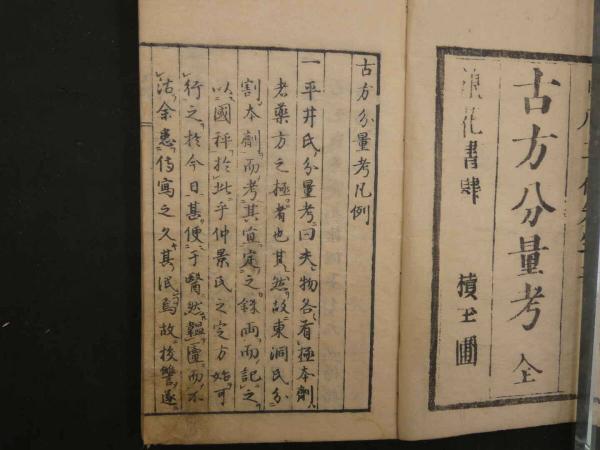 古方分量考 全
浪花書肆 積玉圃
古方分量考凡例
一平井氏分量考曰夫物各有極本劑
者藥方之極者也其然故東洞氏分
割本劑而考其宜定之銖兩而記之
以國秤於此乎仲景氏之定方始可
行之於今日甚便于醫然韞匵而不
沽余患傳寫之久其泯焉故挍讐遂